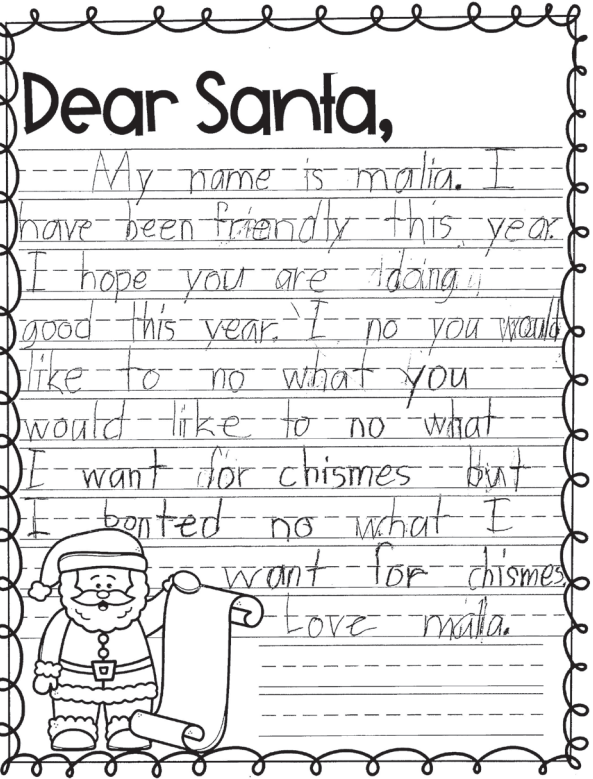 Dear Santa,
My name is malia. I
have been friendly this year.
I hope you are doing
good this year. I no you would
like to no what you
would like to no what
I want for chismes but
I bonted no what I
want for chismes.
Love malia.